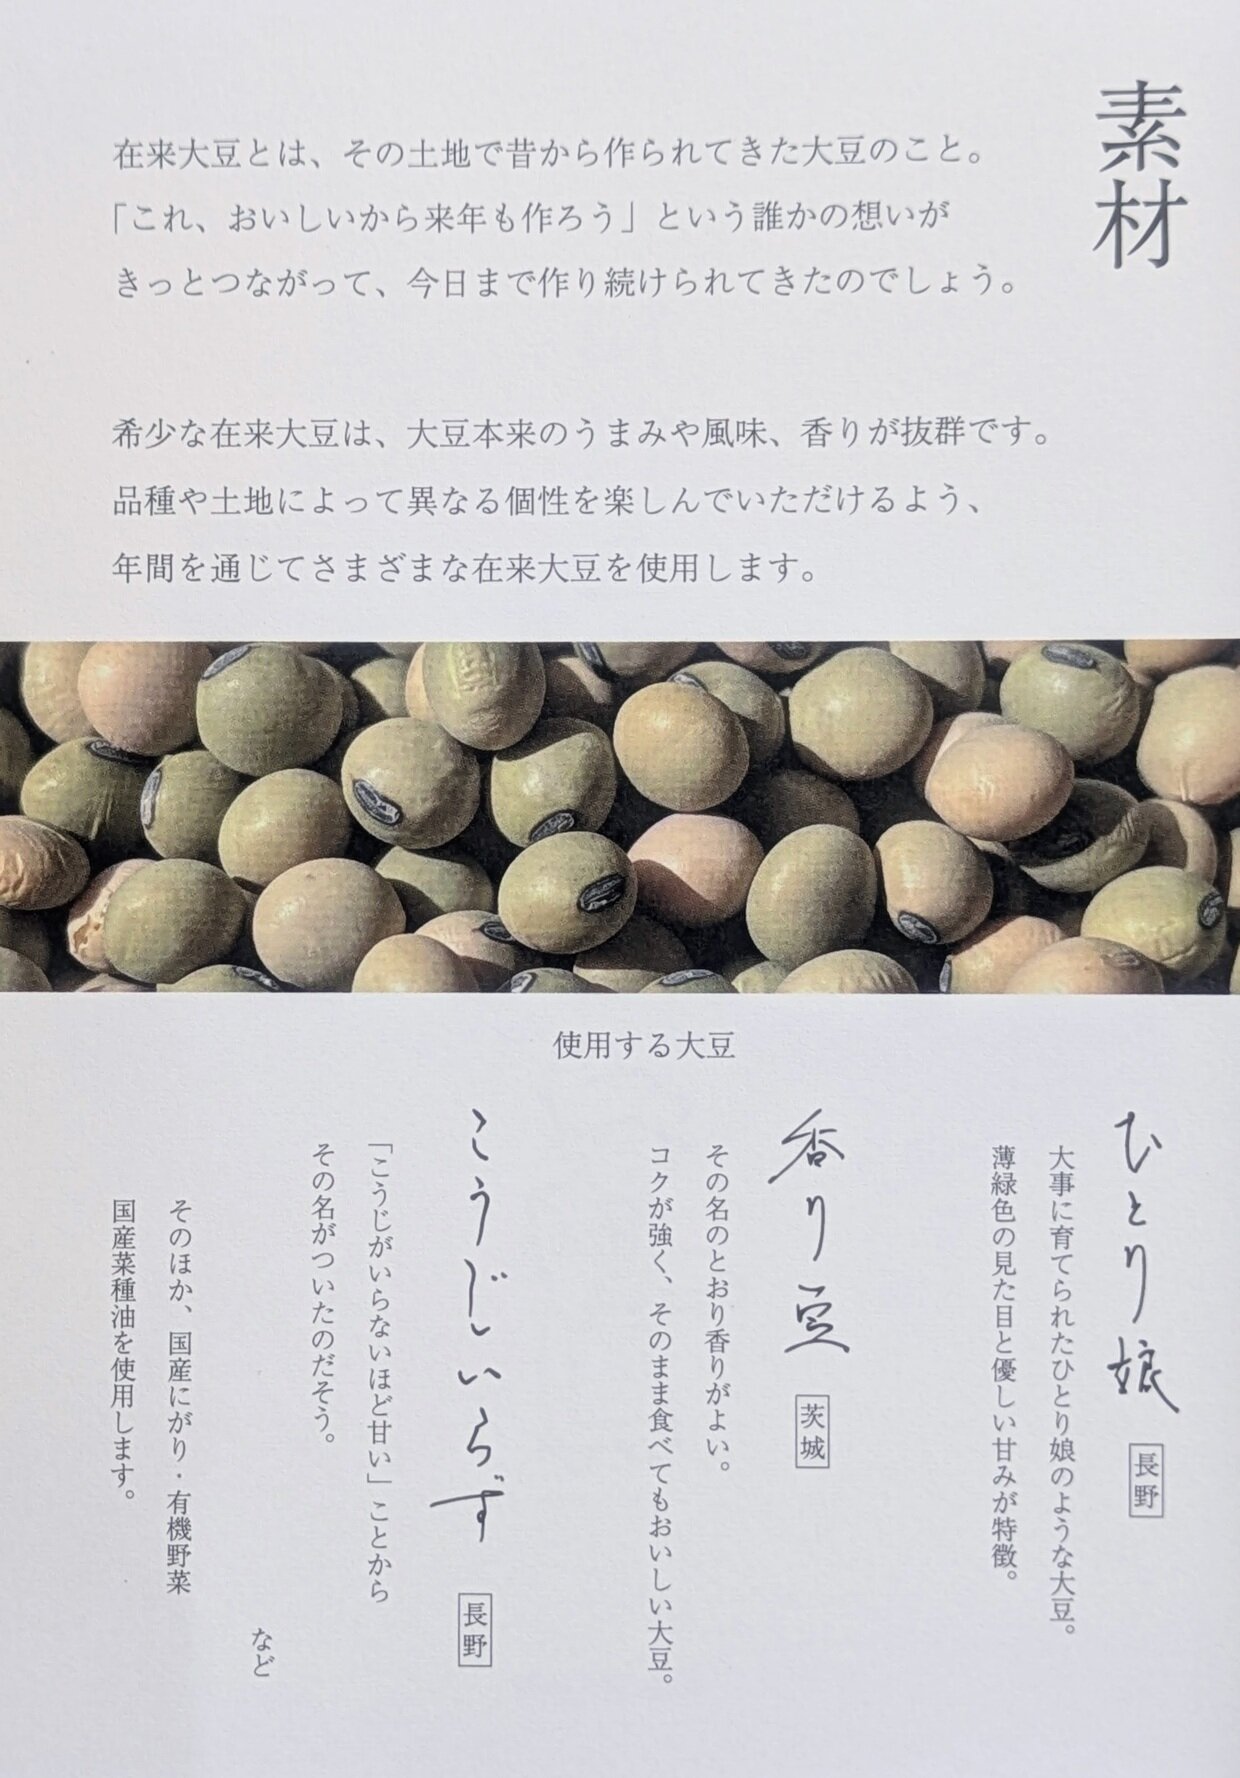 素材
在来大豆とは、その土地で昔から作られてきた大豆のこと。
「これ、おいしいから来年も作ろう」という誰かの想いが
きっとつながって、今日まで作り続けられてきたのでしょう。
希少な在来大豆は、大豆本来のうまみや風味、香りが抜群です。
品種や土地によって異なる個性を楽しんでいただけるよう、
年間を通じてさまざまな在来大豆を使用します。
使用する大豆
ひとり娘 長野
大事に育てられたひとり娘のような大豆。
薄緑色の見た目と優しい甘みが特徴。
香り豆 茨城
その名のとおり香りがよい。
コクが強く、そのまま食べてもおいしい大豆。
こうじいらず 長野
「こうじがいらないほど甘い」ことから
その名がついたのだそう。
など
そのほか、国産にがり・有機野菜
国産菜種油を使用します。